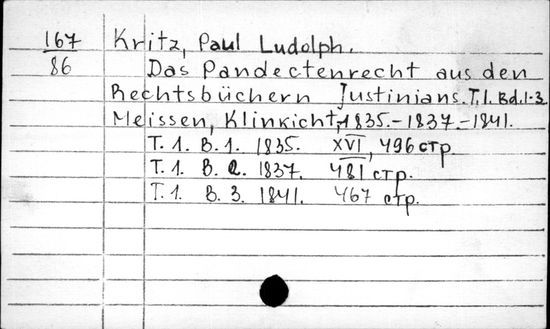 167 Kritz, Paul Ludolph.
86 Das Pandectenrecht aus den
Rechtsbüchern Justinians. T. 1. Bd. 1-3
Meissen, Klinkicht, 1835.-1837.-1841.
T. 1. B. 1. 1835. XVI, 496 стр.
T. 1. B. 2. 1837. 481 стр.
T. 1. B. 3. 1841. 467 стр.